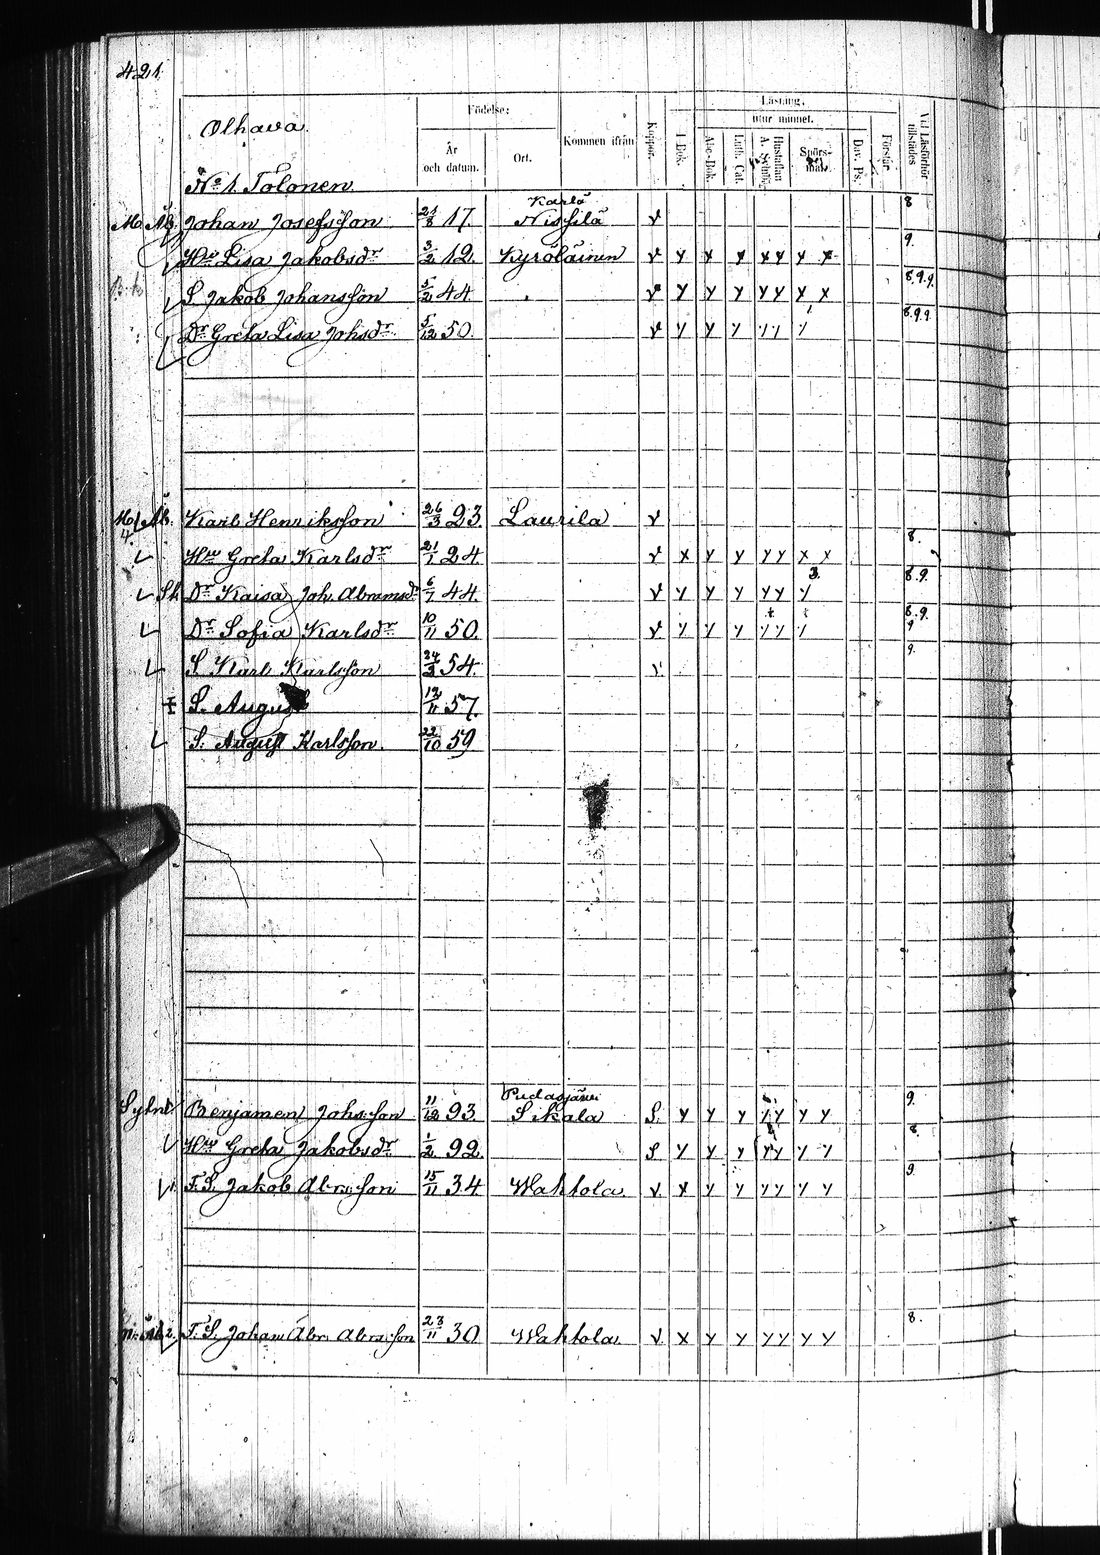 421
Olhava.
N:o 1. Tolonen.
Födelse:
År och datum.
Ort.
Kommen ifrån
Koppor.
Läsning.
utur minnet.
I Bok.
Abc-Bok.
Luth. Cat.
Hustaflan A. Symb.
Spörs-mål.
Dav. Ps.
Förstår.
Vid Läsförhör tillstädes
Johan Josefsson 21/8 17. Karlö Nissilä v 8
Hu Lisa Jakobsdr 3/2 12. Kyröläinen v 9.
S. Jakob Johansson 5/2 44 v 8.9.9.
Dr Greta Lisa Johsdr 5/12 50. v 8.9.9.
Karl Henriksson 26/3 23. Laurila v
Hu Greta Karlsdr 21/1 24. v 8.
Dr Kaisa Joh. Abramsdr 6/7 44. v 3. 8.9.
Dr Sofia Karlsdr 10/11 50. v 8.9.
S. Karl Karlsson 24/3 54. v 9.
S. August 12/11 57.
S. August Karlsson. 23/10 59
Sytn. Benjamen Johsson 11/12 93 Pudasjärvi Sikala S. 9.
Hu Greta Jakobsdr 1/2 92 S 8.
F. S. Jakob Abrsson 15/11 34 Wahtola. v. 9
F. S. Johan Abr. Abrasson 23/11 30 Wahtola. v. 8.